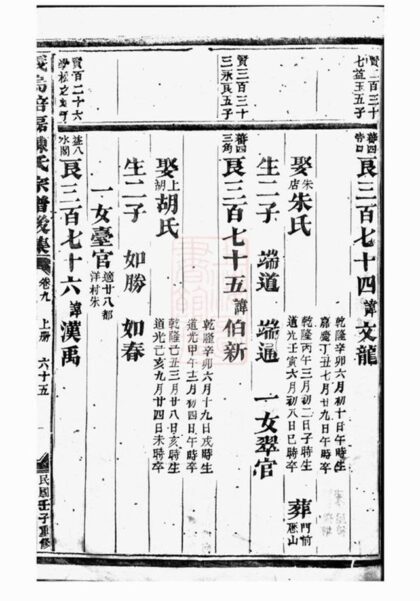 賢二百三十
七益玉五子
善四
良三百七十四諱文龍
乾隆辛卯六月初十日午時生
嘉慶丁丑七月廿九日午時卒
娶朱店朱氏
乾隆丙午三月初二日子時生
道光壬寅六月初八日巳時卒
葬門前
山
生二子 端道 端通 一女翠官
賢三百三十
三永良五子
善四
三角
良三百七十五諱伯新
乾隆辛卯六月十九日戌時生
道光甲午三月初四日午時卒
娶上胡胡氏
乾隆己丑三月廿八日亥時生
道光己亥九月廿四日未時卒
生二子 如勝 如春
一女臺官適廿八都
洋村朱
賢百二十六
益八
水閣
良三百七十六諱漢禹
陳氏宗譜後集 卷九 上册 六十五
民國壬子重修